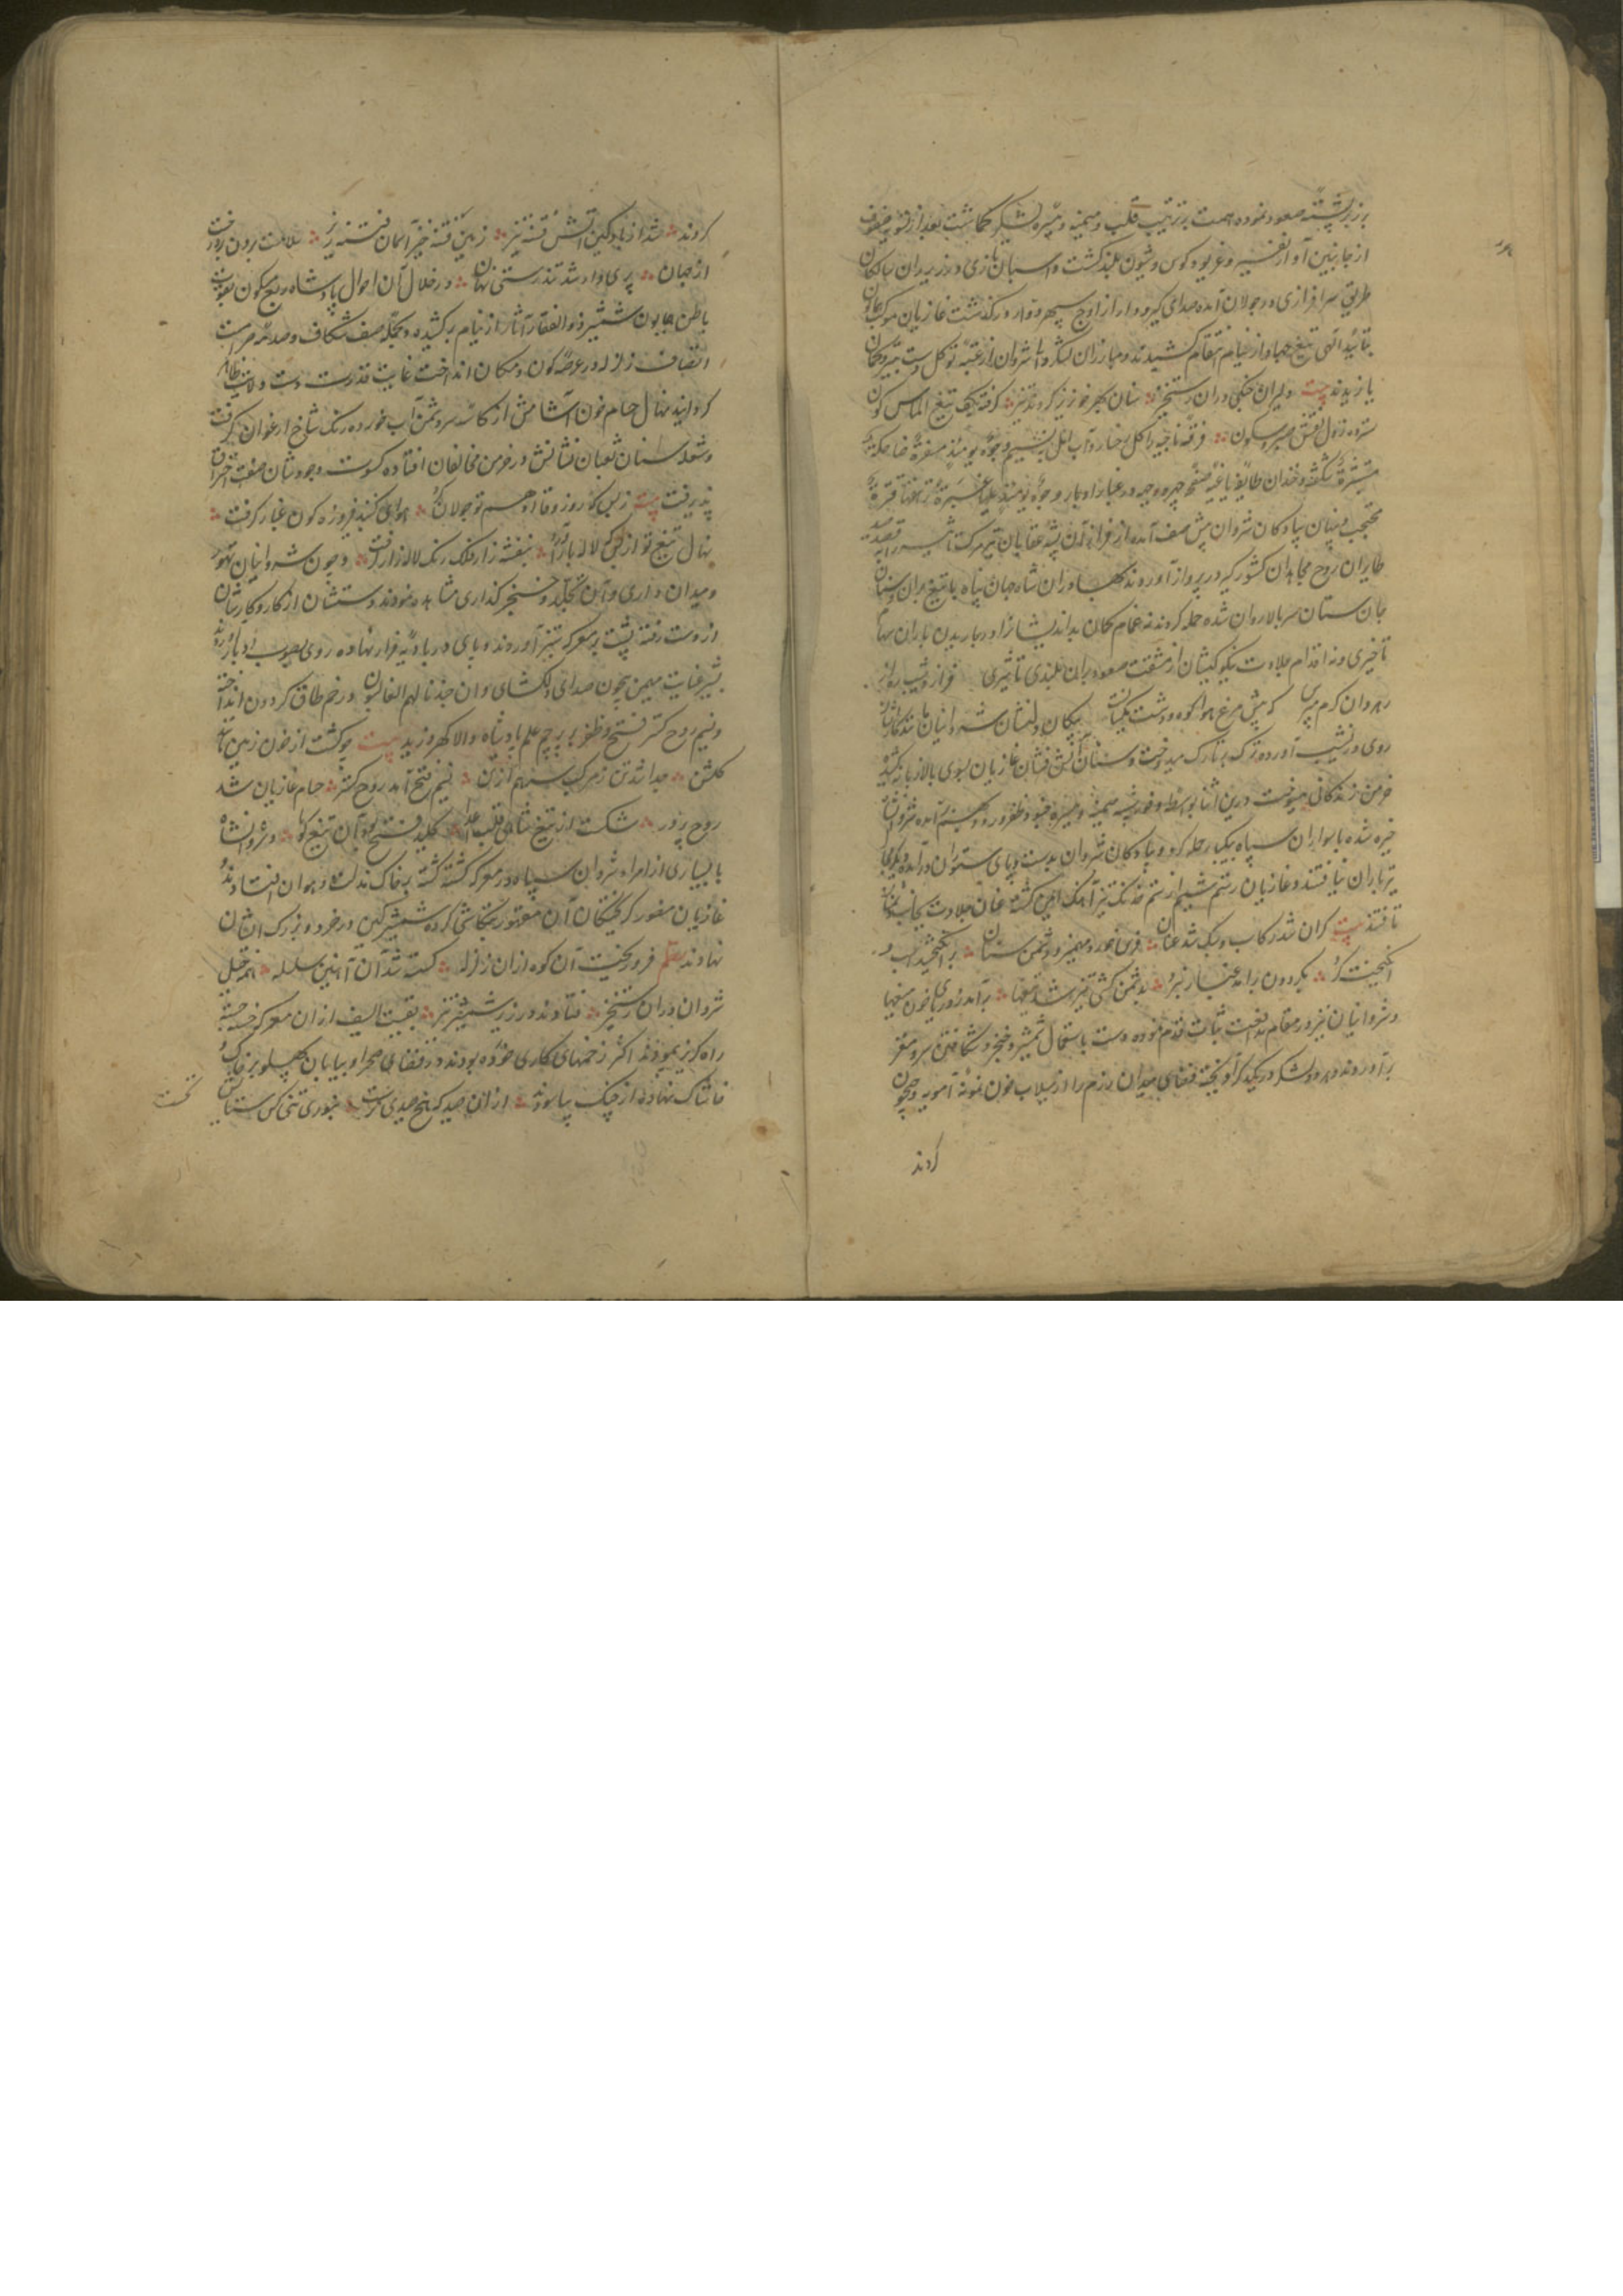 بر زبر پشته صعود نموده همت بر ترتیب قلب و میمنه و میسره لشکر گماشت بعد از تسویه صفوف
از جانبین آواز نفیر و غریو کوس و شیون بلند گشت و اسبان تازی در زیر ران سالکان
طریق سرافرازی در جولان آمده صدای گیر و دار از اوج سپهر دوار در گذشت غازیان موکب همایون
بتأیید الهی تیغ جهاد از نیام انتقام کشیدند و مبارزان لشکر والی شروان از عقبه توکل دست بتیر و کمان
یازیدند بیت دلیران جنگی دران رستخیز سنان بهر خونریز کردند تیز گرفته بکف تیغ الماس گون
سترده ز دل نقش صبر و سکون فرقه ناجیه را گل رخسار و آب وجوه یومئذ مسفرة ضاحکة
مستبشرة شگفته و خندان و طایفه باغیه را صفحه چهره و در غبار ادبار وجوه یومئذ علیها غبرة ترهقها قترة
محتجب و پنهان پیادگان شروان پیش صف آمده از فراز آن پشته عقابان تیز پر
طایران روح مجاهدان کشورگیر در پرواز آوردند و بهادران شاه جهان پناه با تیغ بران و سنان
جان ستان سر بالا روان شده حمله کردند نه غمام کمان بداندیشان را در باریدن باران سهام
تأخیری و نه اقدام جلادت نیکو کیشان از مشقت صعود بران بلندی تأثیری فراز و شیب
رهروان گرم مهری که پیش مرغ هوا کوه و دشت یکسانست پیکان دلنشان شروانیان مانند
روی در نشیب آورده ترک بر تارک میدوخت و سنان آتش فشان غازیان بسوی بالا زبانه کشیده
خرمن زندگانی میسوخت درین اثنا بواسطه میمنه و میسره جنود ظفر ورود شروانشاه
خیره شده با سواران سپاه بیکبار حمله کرد و پیادگان شروان بدست و پای ستوران در آمده
تیرباران نیافتند و غازیان رستم شیم از ستم خدنگ تیز آهنگ ایمن گشته عنان جلادت بجانب
تافتند بیت گران شد رکاب و سبک شد عنان فرس خورد مهمیز و دشمن سنان
انگیخت گرد بگردون برآمد غبار نبرد بدشمن کشی تیز شد تیغها برآمد ز دریای خون میغها
و شروانیان نیز در مقام مدافعت ثبات قدم نموده دست باستعمال شمشیر و خنجر و شکافتن سر و مغفر
برآوردند و هر دو لشکر در یکدیگر آویخته فضای میدان رزم را از سیلاب خون نمونه آمویه و جیحون
کردند
کردند شد از باد کین آتش فتنه تیز زمین فتنه خیز آسمان فتنه ریز سلامت برون برد رخت
از جهان پری وار شد تندرستی نهان در خلال آن احوال پادشاه ربع مسکون بقوت
باطن همایون شمشیر ذوالفقار آثار از نیام برکشیده و بحمله صف شکاف و صدمه صرامت
اتصاف زلزله در عرصه کون و مکان انداخت غایت قدرت دست ولایت ظاهر
گردانید نهال حسام خون آشامش از کاسه سر دشمن آب خورده رنگ شاخ ارغوان گرفت
و شعله سنان ثعبان نشانش در خرمن مخالفان افتاده کسوت وجودشان صفت احتراق
پذیرفت بیت ز بس که روز وقا ادهم تو جولان کرد هوای گنبد فیروزه گون غبار گرفت
نهال تیغ تو از بس که لاله بار آورد بنفشه زار فلک رنگ لاله زار گرفت و چون شروانیان تهور
و میدان داری و آئین تجلد و خنجر گذاری مشاهده نمودند دستشان از کار و کارشان
از دست رفته پشت بر معرکه ستیز آوردند و پای در بادیه فرار نهاده روی بصوب ادبار آوردند
بشیر عنایت مبین چون صدای دلگشای و ان جندنا لهم الغالبون در خم طاق گردون انداخته
و نسیم روح گستر فتح و ظفر بر پرچم علم پادشاه والا گهر وزید بیت چو گشت از خون زمین
گلشن جدا شد تن ز مرکب سر هم از تن نسیم فتح آمد روح گستر حسام غازیان شد
روح پرور شکست از تیغ شاهی قلب اعدا کلید فتح بود آن تیغ گویا و شروانشاه
با بسیاری از امراء شروان سپاه در معرکه کشته گشته بر خاک مذلت و هوان افتادند و
غازیان منصور گریختگان آن مقهور تعاقب کرده شمشیر کین در خرد و بزرگ ایشان
نهادند نظم فرو ریخت آن کوه ازان زلزله گسسته شد آن آهنین سلسله همه خیل
شروان دران رستخیز فتادند در زیر شمشیر تیز بقیت السیف ازان معرکه خسته
راه گریز پیمودند اکثر زخمهای کاری خورده بودند در فضای صحرا و بیابان پهلو بر خاک و
خاشاک نهاده از چنگ ازان صید
تحت